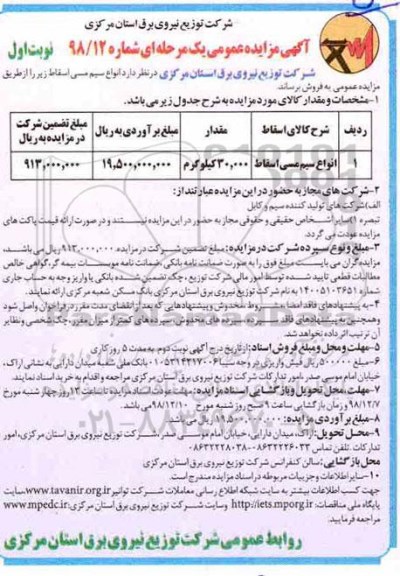 شرکت توزیع نیروی برق استان مرکزی
آگهی مزایده عمومی یک مرحله ای شماره ۹۸/۱۲ نوبت اول
شرکت توزیع نیروی برق استان مرکزی در نظر دارد انواع سیم مسی اسقاط زیر را از طریق
مزایده عمومی به فروش برساند.
۱-مشخصات و مقدار کالای مورد مزایده به شرح جدول زیر می باشد.
ردیف شرح کالای اسقاط مقدار مبلغ برآوردی به ریال مبلغ تضمین شرکت در مزایده به ریال
۱ انواع سیم مسی اسقاط ۳۰,۰۰۰ کیلوگرم ۱۹,۵۰۰,۰۰۰,۰۰۰ ۹۱۳,۰۰۰,۰۰۰
۲-شرکت های مجاز به حضور در این مزایده عبارتند از:
الف) شرکت های تولید کننده سیم و کابل
تبصره ۱) سایر اشخاص حقیقی و حقوقی مجاز به حضور در این مزایده نیستند و در صورت ارائه قیمت پاکت های
مزایده عودت می گردد.
۳-مبلغ و نوع سپرده شرکت در مزایده: مبلغ تضمین شرکت در مزایده ۹۱۳,۰۰۰,۰۰۰ ریال می باشد،
مزایده گران می بایست مبلغ فوق را به صورت ضمانت نامه بانکی، ضمانت نامه موسسات بیمه گر، گواهی خالص
مطالبات قطعی تایید شده توسط امور مالی شرکت توزیع، چک تضمین شده بانکی یا واریز وجه به حساب جاری
شماره ۱۴۰۰۵۱۰۳۶۵۱ به نام شرکت توزیع نیروی برق استان مرکزی بانک مسکن شعبه مرکزی ارائه نمایند.
۴-به پیشنهادهای فاقد امضاء، مشروط، مخدوش و پیشنهادهایی که بعد از انقضای مدت مقرر در فراخوان واصل شود
و همچنین به پیشنهادهای فاقد سپرده، سپرده های مخدوش، سپرده های کمتر از میزان مقرر، چک شخصی و نظایر
آن ترتیب اثر داده نخواهد شد.
۵-مهلت و محل و مبلغ فروش اسناد: از تاریخ درج آگهی نوبت دوم به مدت ۵ روز کاری
خیابان امام موسی صدر، امور تدارکات شرکت توزیع نیروی برق استان مرکزی مراجعه و اقدام به خرید اسناد نمایند.
۷-مهلت محل تحویل و بازگشایی اسناد مزایده: مهلت عودت اسناد مزایده تا ساعت ۱۳ روز چهار شنبه مورخ
۹۸/۱۲/۷ و زمان بازگشایی ساعت ۹ صبح روز شنبه مورخ ۹۸/۱۲/۱۰ می باشد.
۸-مبلغ برآوردی مزایده: ۱۹,۵۰۰,۰۰۰,۰۰۰ ریال می باشد.
۹-محل تحویل: اراک، میدان دارایی، خیابان امام موسی صدر، شرکت توزیع نیروی برق استان مرکزی، امور
محل بازگشایی: سالن کنفرانس شرکت توزیع نیروی برق استان مرکزی
۱۰-سایر اطلاعات و جزییات مربوطه در اسناد مزایده مندرج است.
جهت کسب اطلاعات بیشتر به سایت شبکه اطلاع رسانی معاملات شرکت توانیر www.tavanir.org.ir، سایت
پایگاه ملی مناقصات: http://iets.mporg.ir وسایت شرکت توزیع نیروی برق استان مرکزی: www.mpedc.ir
مراجعه فرمایید.
روابط عمومی شرکت توزیع نیروی برق استان مرکزی